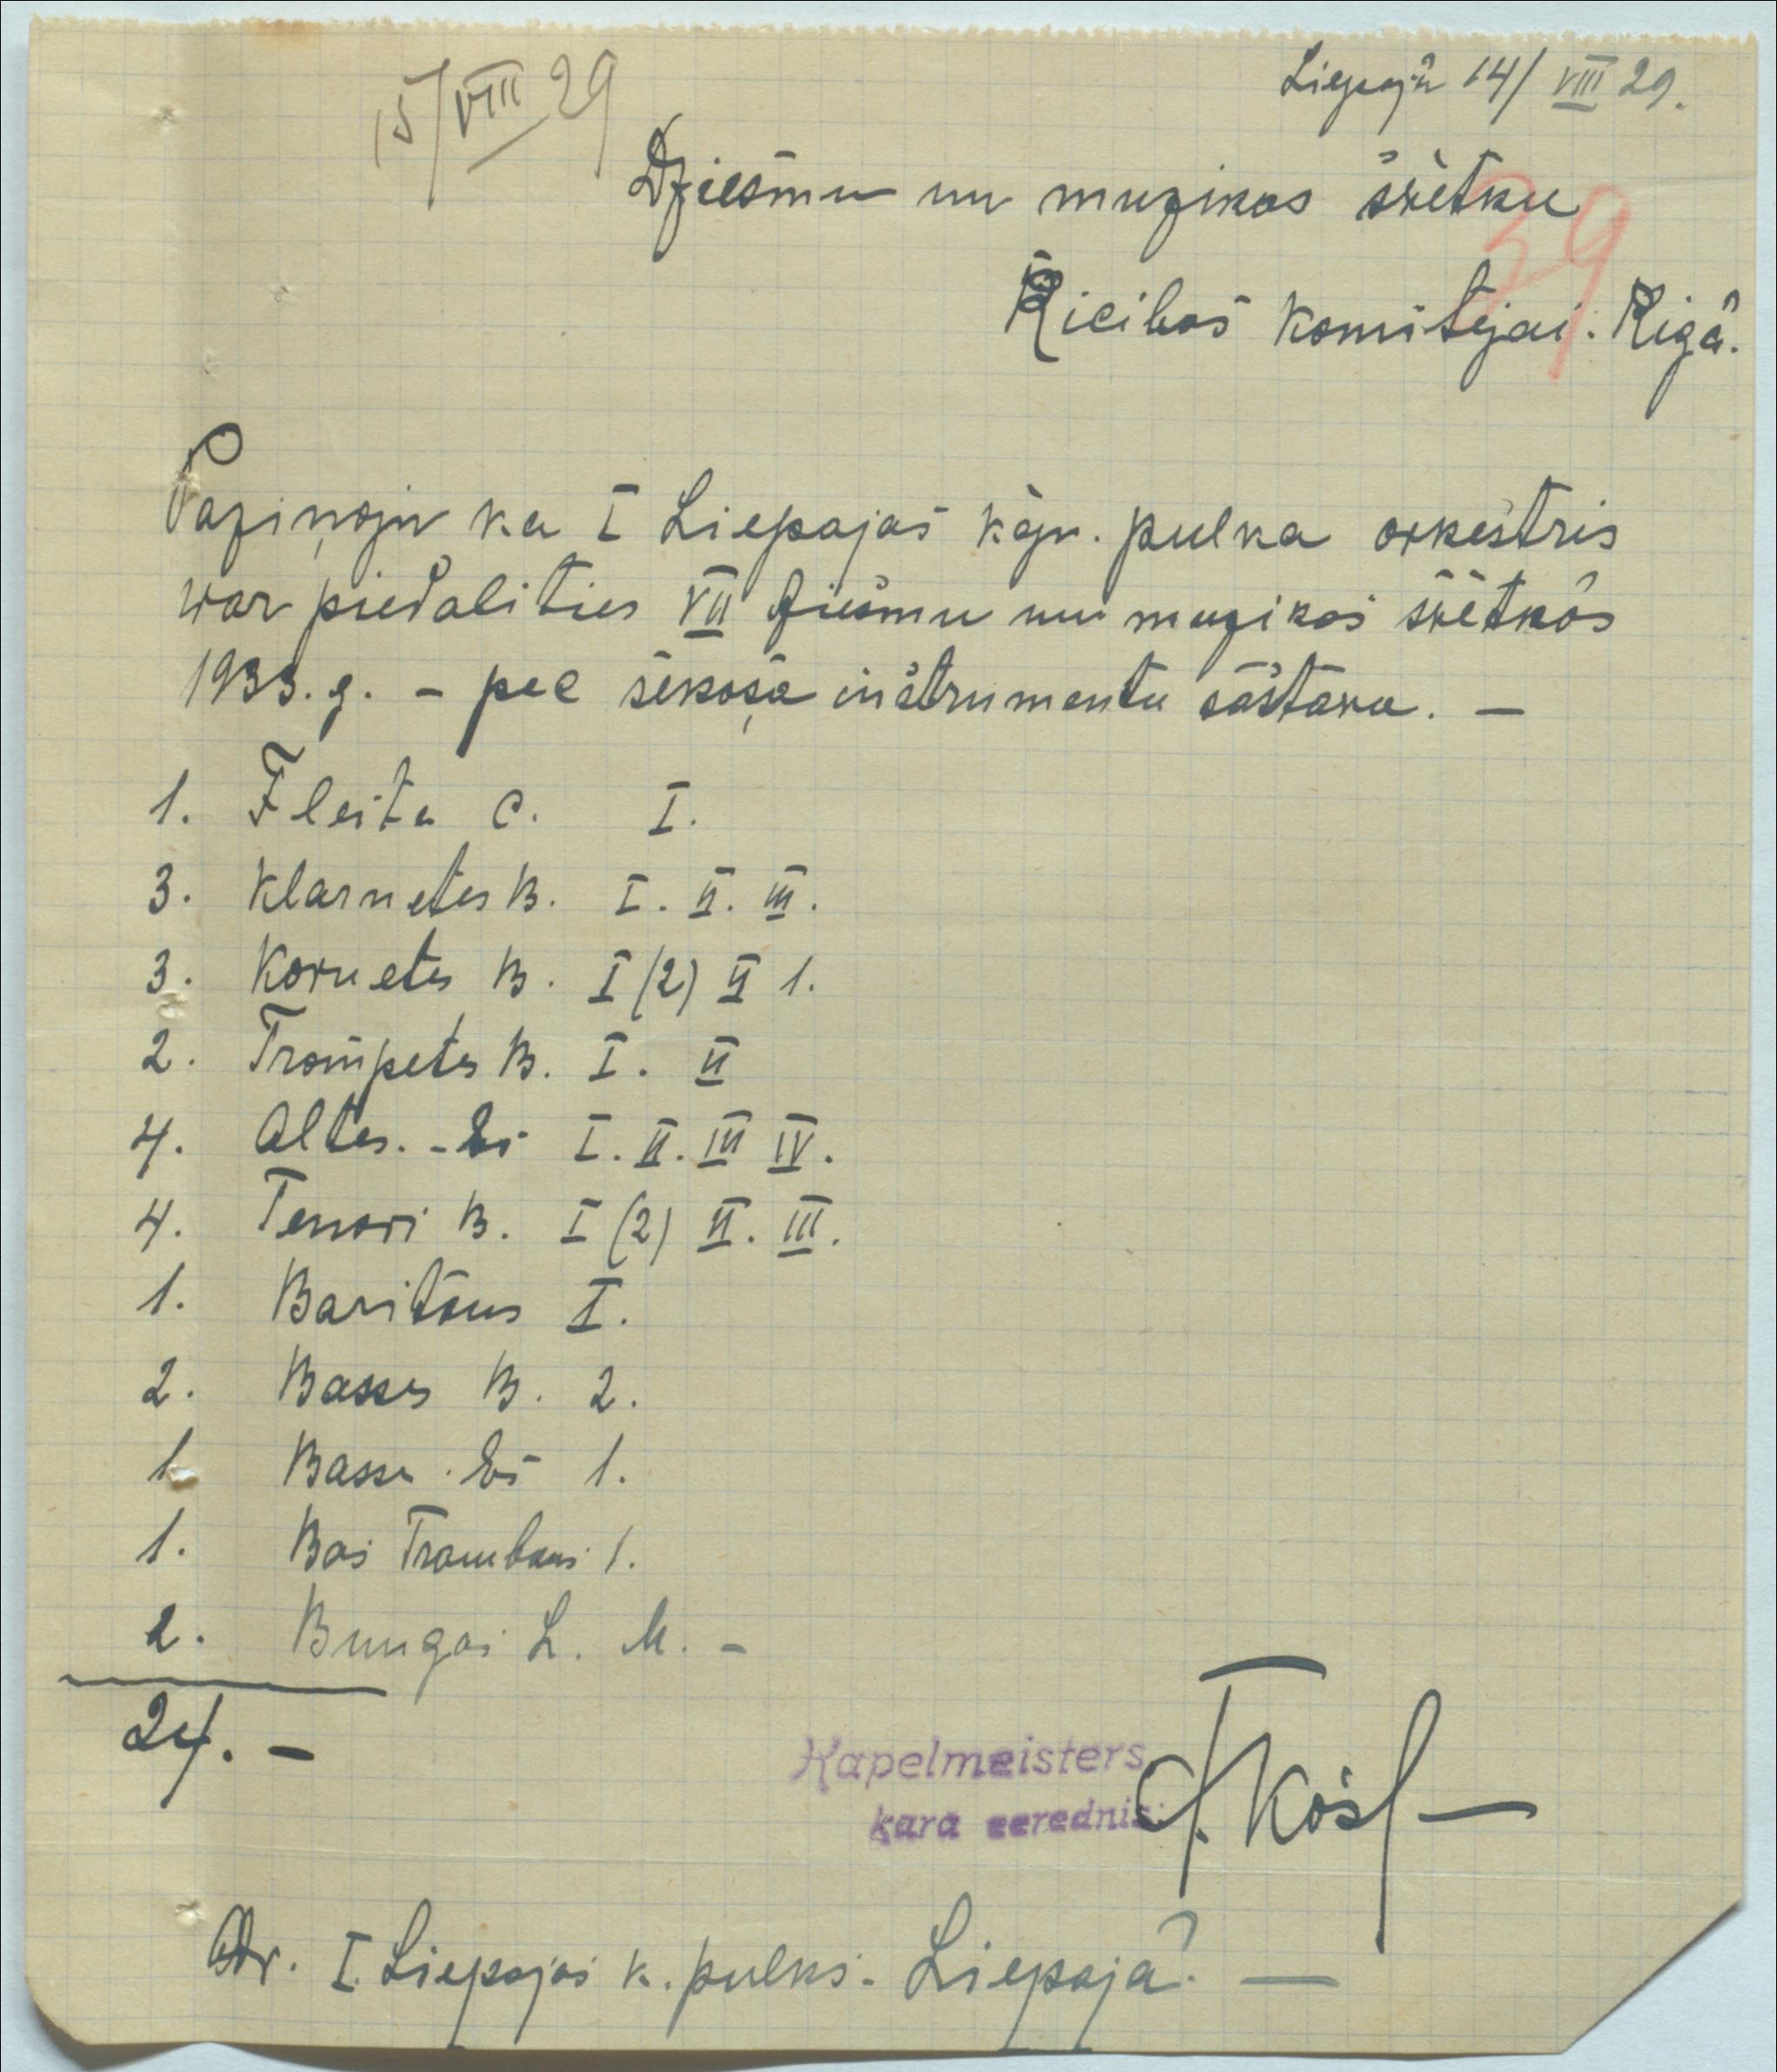 15/VIII 29
Liepajā 14/VIII 29.
Dziesmu un muzikas svētku
39
Rīcibas komitejai. Rigâ.
Paziņoju ka I Liepajas kājn. pulka orkestris
war piedalities VII dziesmu un muzikas svētkôs
1933. g. – pec sekoša instrumentu sastawa. –
1. Fleita C. I.
3. Klarnetes B. I. II. III.
3. Kornetes B. I (2) II 1.
2. Trompetes B. I. II
4. Altes. - Es I. II. III IV.
4. Tenori B. I (2) II. III.
1. Baritons I.
2. Basses B. 2.
1. Bass Es 1.
1. Bas Trombons 1.
2. Bungas L. M. –
24. –
Kapelmeisters
kara eerednis:
Adr. I. Liepajas k. pulks. Liepajâ. —